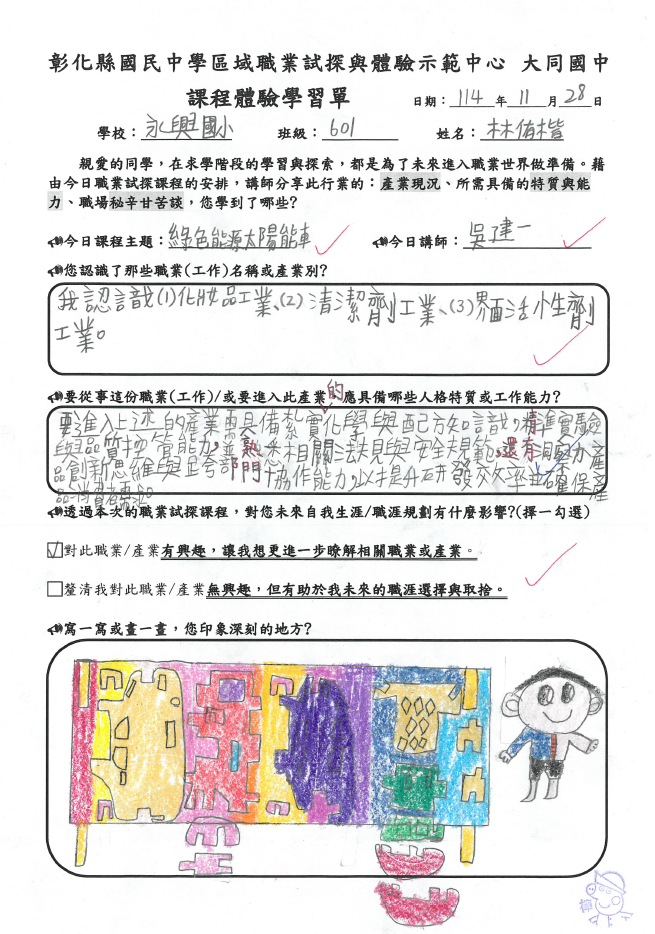 彰化縣國民中學區域職業試探與體驗示範中心 大同國中
課程體驗學習單
日期：114 年 11 月 28 日
學校：永興國小 班級：601 姓名：林侑楷
親愛的同學，在求學階段的學習與探索，都是為了未來進入職業世界做準備。藉
由今日職業試探課程的安排，講師分享此行業的：產業現況、所需具備的特質與能
力、職場祕辛甘苦談，您學到了哪些？
今日課程主題：綠色能源太陽能車 今日講師：吳建一
您認識了那些職業(工作)名稱或產業別?
我認識(1)化妝品工業、(2)清潔劑工業、(3)界面活性劑
工業。
要從事這份職業(工作)/或要進入此產業的應具備哪些人格特質或工作能力?
要進入上述的產業需具備紮實化學與配方知識，精準實驗
與品質控管能力，並熟悉相關法規與安全規範，還有洞察力產
品創新思維與跨部門協作能力，以提升研發效率並確保產
透過本次的職業試探課程，對您未來自我生涯/職涯規劃有什麼影響?(擇一勾選)
對此職業/產業有興趣，讓我想更進一步瞭解相關職業或產業。
釐清我對此職業/產業無興趣，但有助於我未來的職涯選擇與取捨。
寫一寫或畫一畫，您印象深刻的地方?